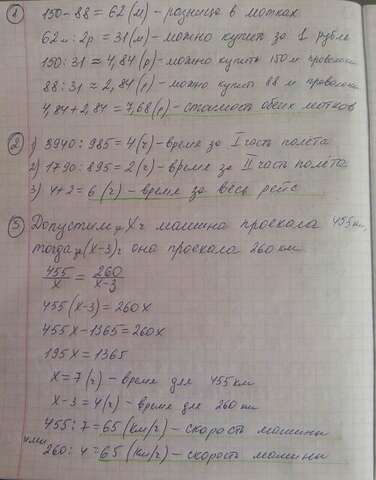 ① 150-88=62(м)-розница в мотках
62м:2р=31(м)-можно купить за 1 рубль
150:31≈4,84(р)-можно купить 150м проволоки
88:31≈2,84(р)-можно купит 88 м проволоки
4,84+2,84=7,68(р)-стоимость обеих мотков
② 1) 3940:985=4(ч)-время за I часть полёта
2) 1790:895=2(ч)-время за II часть полёта
3) 4+2=6(ч)-время за весь рейс
③ Допустим, Xч машина проехала 455км,
тогда, (X-3)ч она проехала 260 км
455/x = 260/x-3
455(x-3)=260x
455x-1365=260x
195x=1365
x=7(ч)-время для 455км
x-3=4(ч)-время для 260км
455:7=65(км/ч)-скорость машины
или
260:4=65(км/ч)-скорость машины